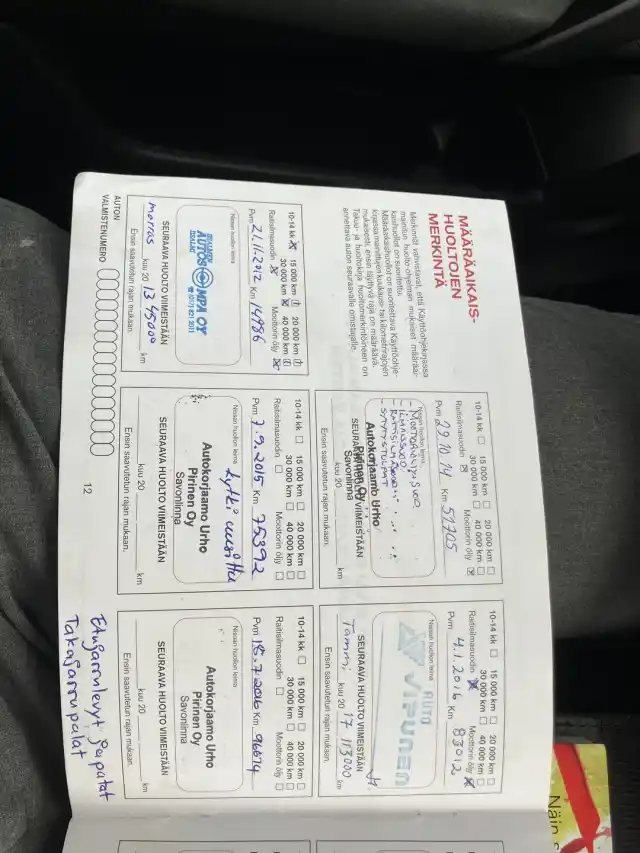 MÄÄRÄAIKAIS-
HUOLTOJEN
MERKINTÄ
Merkinnät vahvistavat, että Käyttöohjekirjassa
mainitun huolto-ohjelman mukaiset määräai-
kaishuollot on suoritettu.
Määräaikaishuollot on suoritettava Käyttöohje-
kirjassa mainittujen kuukausi- tai kilometrirajojen
mukaisesti, ensin täyttyvä raja on määräävä.
Takuu- ja huoltokirja huoltomerkintöineen on
annettava auton seuraavalle omistajalle.
10-14 kk 15 000 km 20 000 km
30 000 km 40 000 km
Raitisilmasuodin Moottorin öljy
Pvm 29.10.14 Km 51705
Nissan huollon leima
- MOOTTORIÖLJY, SUOD.
- ILMANSUOD.
- SYTYTYSTULPAT
Autokorjaamo Urho
Pirinen Oy
Savonlinna
SEURAAVA HUOLTO VIIMEISTÄÄN
kuu 20 km
Ensin saavutetun rajan mukaan.
10-14 kk 15 000 km 20 000 km
30 000 km 40 000 km
Raitisilmasuodin Moottorin öljy
Pvm 4.1.2016 Km 83012
Nissan huollon leima
AUTO
VIPUNEN
SEURAAVA HUOLTO VIIMEISTÄÄN
Tammi kuu 20 17 113000 km
Ensin saavutetun rajan mukaan.
10-14 kk 15 000 km 20 000 km
30 000 km 40 000 km
Raitisilmasuodin Moottorin öljy
Pvm 21.11.2012 Km 14986
Nissan huollon leima
OY
SEURAAVA HUOLTO VIIMEISTÄÄN
marras kuu 20 13 45000 km
Ensin saavutetun rajan mukaan.
10-14 kk 15 000 km 20 000 km
30 000 km 40 000 km
Raitisilmasuodin Moottorin öljy
Pvm 7.9.2015 Km 75392
Nissan huollon leima
kytkin uusittu
Autokorjaamo Urho
Pirinen Oy
Savonlinna
SEURAAVA HUOLTO VIIMEISTÄÄN
kuu 20 km
Ensin saavutetun rajan mukaan.
10-14 kk 15 000 km 20 000 km
30 000 km 40 000 km
Raitisilmasuodin Moottorin öljy
Pvm 15.7.2016 Km 96674
Nissan huollon leima
Autokorjaamo Urho
Pirinen Oy
Savonlinna
SEURAAVA HUOLTO VIIMEISTÄÄN
kuu 20 km
Ensin saavutetun rajan mukaan.
AUTON
VALMISTENUMERO
12
Etujarrulevyt ja palat
Takajarrupalat
Näin